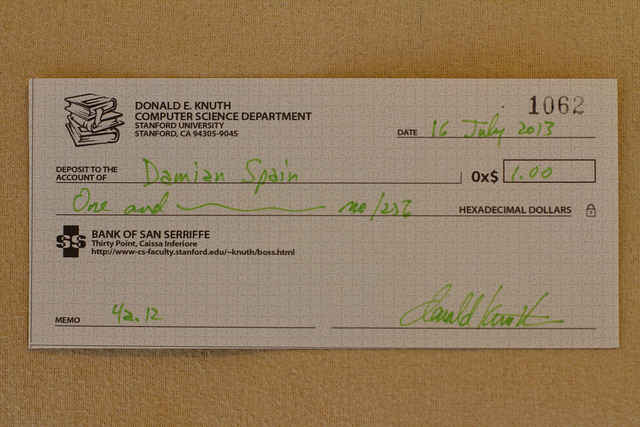 1062
DONALD E. KNUTH
COMPUTER SCIENCE DEPARTMENT
STANFORD UNIVERSITY
STANFORD, CA 94305-9045
DATE 16 July 2013
DEPOSIT TO THE
ACCOUNT OF Damian Spain 0x$ 1.00
One and no/256 HEXADECIMAL DOLLARS
SS BANK OF SAN SERRIFFE
Thirty Point, Caissa Inferiore
http://www-cs-faculty.stanford.edu/~knuth/boss.html
MEMO 4a.12 Donald Knuth